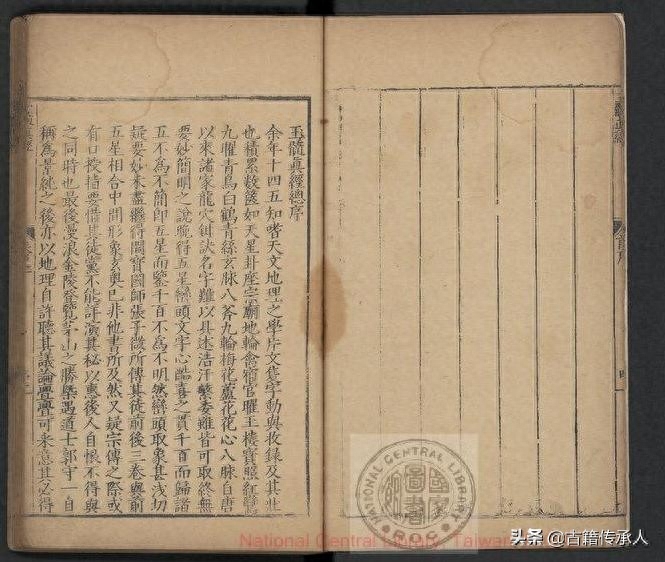 玉髓真經總序
余年十四五知嗜天文地理之學片文隻字動與收錄及其壯
也積累數篋如天星卦座宗廟地輪禽宿官曜玉樓寶照紅鸞
九曜青烏白鶴青絲玄脉八斧九輪梅花蘆花花心八脉自唐
以來諸家龍穴鈐訣名字難以具述浩汗繁委雖皆可取終無
要妙簡明之說晚得五星巒頭文字心酷喜之貫千百而歸諸
五不為不簡即五星而鑒千百不為不明然巒頭取象甚淺切
疑要妙未盡繼得國寶國師張子微所傳其徒前後三卷與前
五星相合中間形象玄奥已非他書所及然又疑宗傳之際或
有口授指要惜其徒黨不能詳演其秘以惠後人自恨不得與
之同時也最後漫浪金陵登覽茅山之勝槩遇道士郭守一自
稱為景純之後亦以地理自許聽其議論亹亹可采意其必得
首序
四
NATIONAL CENTRAL LIBRARY
國家圖書館
ROC
National Central Library, Taiwan
头条 @古籍传承人